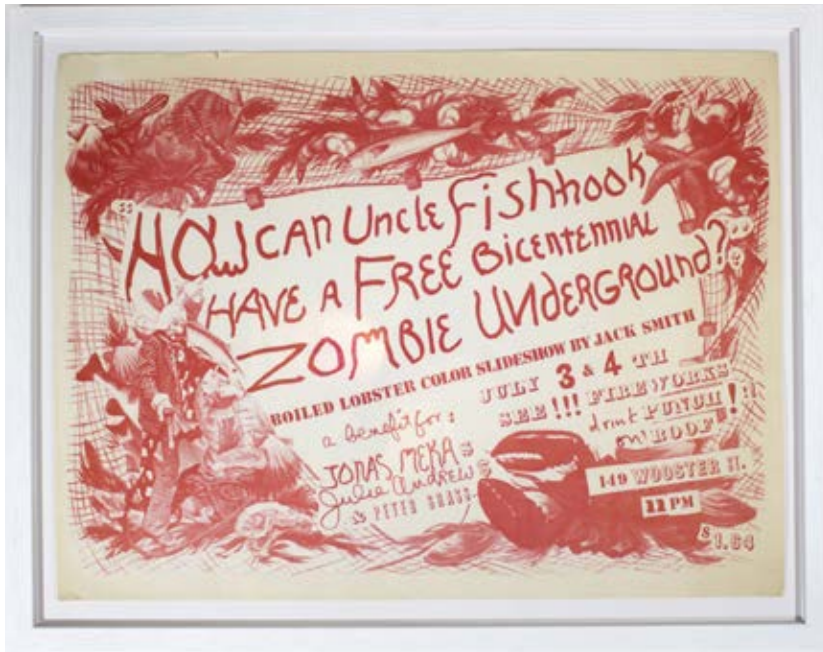 HOW CAN Uncle Fishhook
HAVE A FREE BICENTENNIAL
ZOMBIE UNDERGROUND?
BOILED LOBSTER COLOR SLIDESHOW BY JACK SMITH
a benefit for:
JONAS MEKAS
Julie Andrews
& PETER
JULY 3 & 4 TH
SEE!!! FIREWORKS
drink PUNCH!
on ROOF
149 WOOSTER ST.
11 PM
$1.64